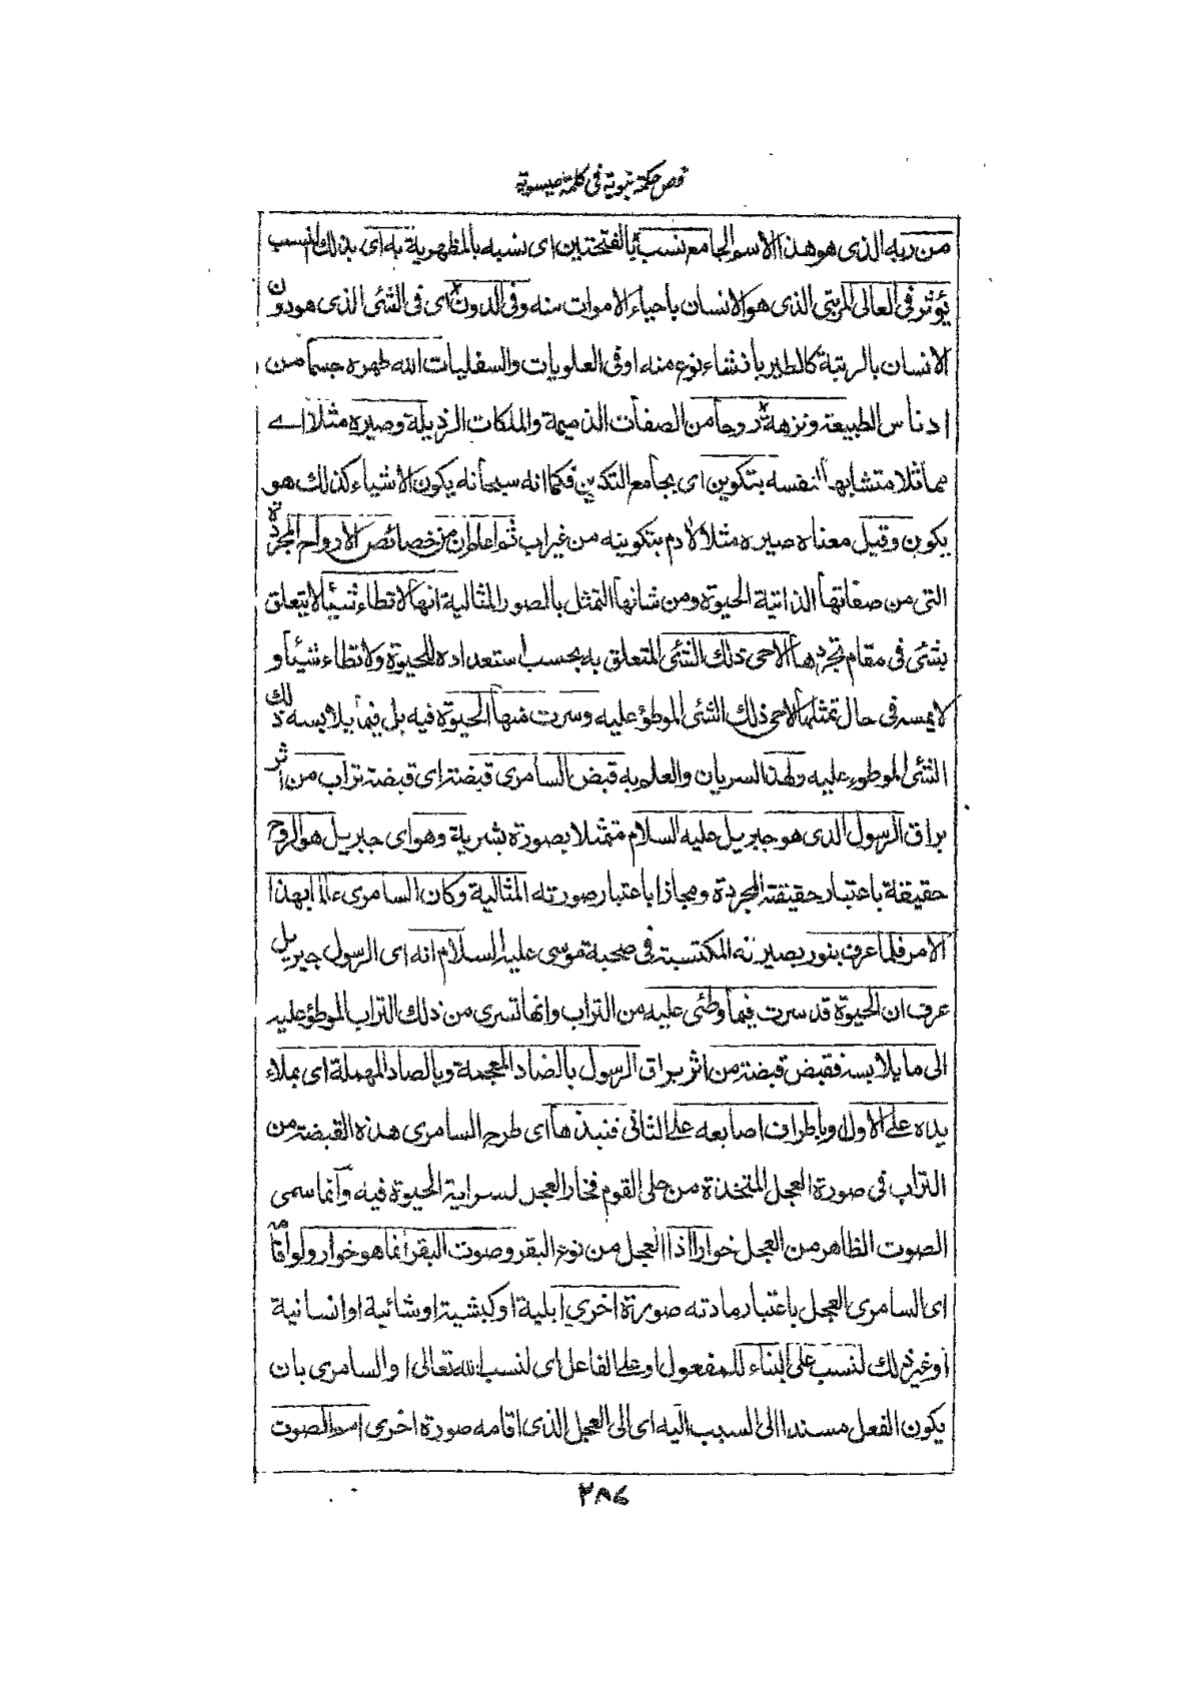 فص حكمة نبوية فى كلمة عيسوية
من ربه الذى هو هذا الاسم الجامع نسب بالفتحتين اى نسبه بالمظهرية به اى بذلك النسب
يؤثر فى العالى المرتبى الذى هو الانسان باحياء الاموات منه وفى الدون اى فى الشئى الذى هو دون
الانسان بالرتبة كالطير بانشاء نوع منه او فى العلويات والسفليات الله طهره جسما من
ادناس الطبيعة ونزهه روحا من الصفات الذميمة والملكات الرذيلة وصيره مثلا اے
مماثلا متشابها لنفسه بتكوين اى بجامع التكوين فكما انه سبحانه يكون الاشياء كذلك هو
يكون وقيل معناه صيره مثلا لادم بتكوينه من غير اب ثم اعلم ان من خصائص الارواح المجردة
التى من صفاتها الذاتية الحيوة ومن شانها التمثل بالصور المثالية انها لا تطاء شيئا لا يتعلق
بشئى فى مقام تجردها الا حى ذلك الشئى المتعلق به بحسب استعداده للحيوة ولا تطاء شيئا و
لا يمسه فى حال تمثلها الا حى ذلك الشئى الموطؤ عليه وسرت منها الحيوة فيه بل فيما يلابسه ذلك
الشئى الموطوء عليه ولهذا السريان والعلم به قبض السامرى قبضة اى قبضة تراب من اثر
براق الرسول الذى هو جبريل عليه السلام متمثلا بصورة بشرية وهو اى جبريل هو الروح
حقيقة باعتبار حقيقته المجردة ومجازا باعتبار صورته المثالية وكان السامرى عالما بهذا
الامر فلما عرف بنور بصيرته المكتسبة فى صحبة موسى عليه السلام انه اى الرسول جبريل
عرف ان الحيوة قد سرت فيما وطئى عليه من التراب وانها تسرى من ذلك التراب الموطؤ عليه
الى ما يلابسه فقبض قبضة من اثر براق الرسول بالضاد المعجمة وبالصاد المهملة اى بملاء
يده على الاول وباطراف اصابعه على الثانى فنبذها اى طرح السامرى هذه القبضة من
التراب فى صورة العجل المتخذة من حلى القوم فخار العجل لسراية الحيوة فيه وانما سمى
الصوت الظاهر من العجل خوارا اذا العجل من نوع البقر وصوت البقر انما هو خوار ولو اقامه
اى السامرى العجل باعتبار مادته صورة اخرى ابلية او كبشية او شائية او انسانية
او غير ذلك لنسب على البناء للمفعول او على الفاعل اى لنسب الله تعالى او السامرى بان
يكون الفعل مسندا الى السبب اليه اى الى العجل الذى اقامه صورة اخرى اسم الصوت
٢٨٤